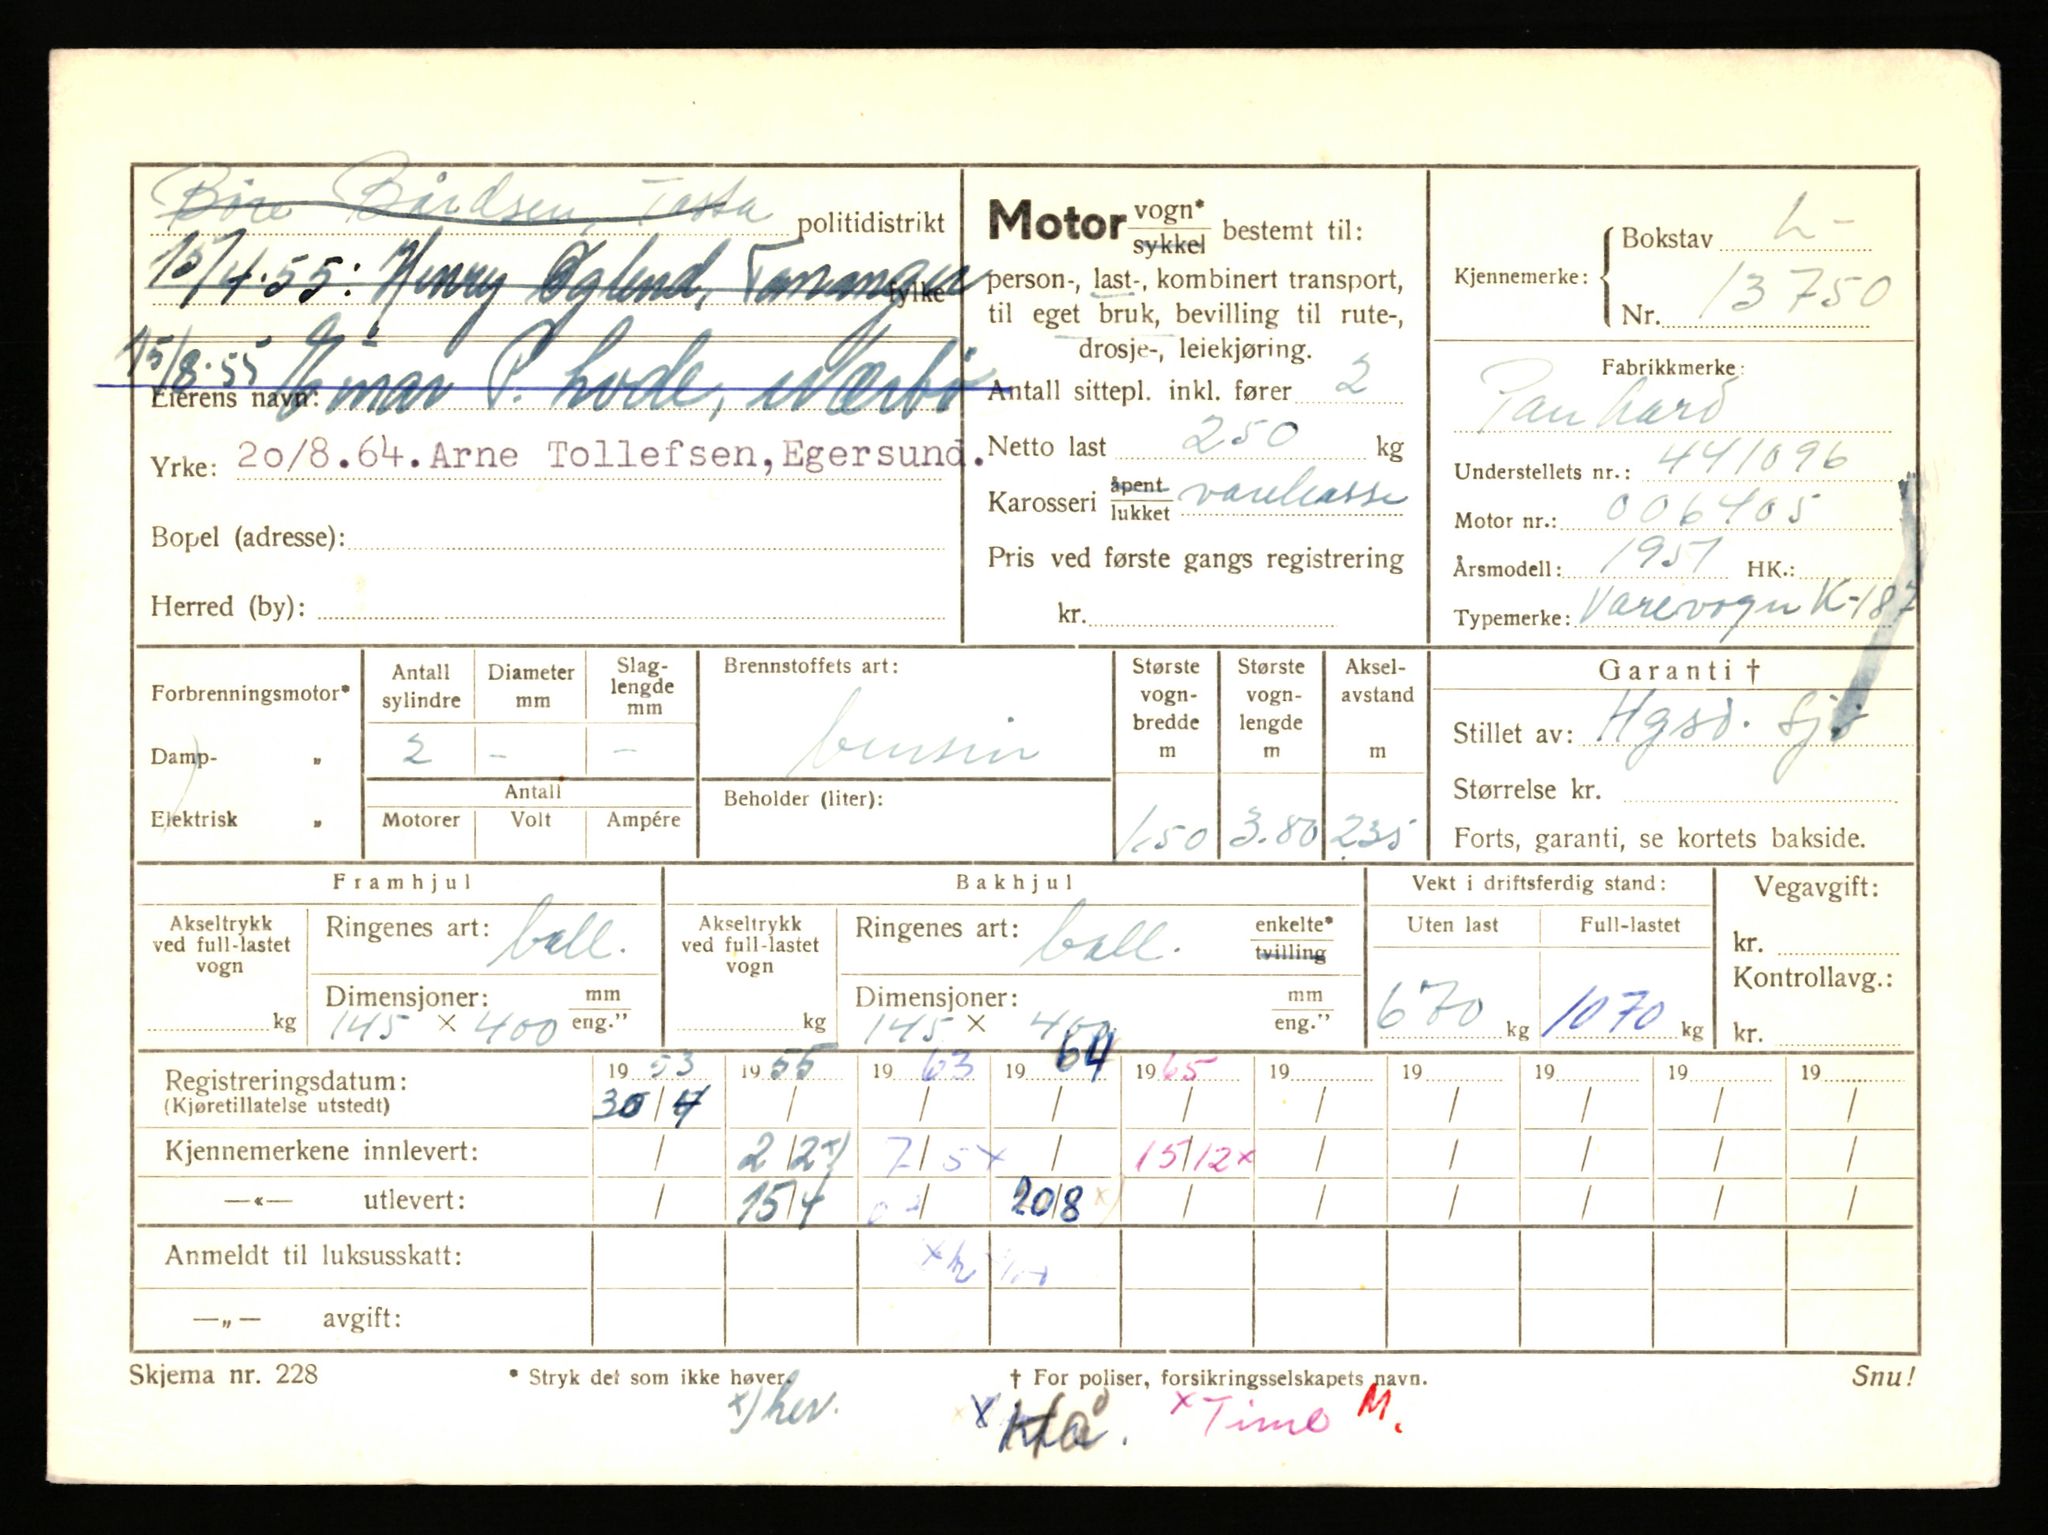 Børe Bårdsen, Tasta politidistrikt
15/4.55: Henry Øglend, Tananger fylke
15/8.55 Einar P. Lode, Nærbø
Eierens navn:
Yrke: 20/8.64. Arne Tollefsen, Egersund.
Bopel (adresse):
Herred (by):
Motor vogn* sykkel bestemt til:
person-, last-, kombinert transport,
til eget bruk, bevilling til rute-,
drosje-, leiekjøring.
Antall sittepl. inkl. fører 2
Netto last 250 kg
Karosseri åpent lukket varekasse
Pris ved første gangs registrering
kr.
Kjennemerke: Bokstav L-
Nr. 13750
Fabrikkmerke:
Panhard
Understellets nr.: 441096
Motor nr.: 006405
Årsmodell: 1951 HK.:
Typemerke: Varevogn K-187
Forbrenningsmotor*
Damp- „
Elektrisk „
Antall sylindre
Diameter mm
Slag-lengde mm
2 - -
Antall
Motorer Volt Ampére
Brennstoffets art:
bensin
Beholder (liter):
Største vogn-bredde m
Største vogn-lengde m
Aksel-avstand m
1.50 3.80 235
Garanti †
Stillet av: Hgsd. Sjø
Størrelse kr.
Forts, garanti, se kortets bakside.
Framhjul
Akseltrykk ved full-lastet vogn
kg
Ringenes art: ball.
Dimensjoner: mm eng."
145 × 400
Bakhjul
Akseltrykk ved full-lastet vogn
kg
Ringenes art: ball. enkelte* tvilling
Dimensjoner: mm eng."
145 × 400
Vekt i driftsferdig stand:
Uten last Full-lastet
670 kg 1070 kg
Vegavgift:
kr.
Kontrollavg.:
kr.
Registreringsdatum: 19 53 19 55 19 63 19 64 19 65 19 19 19 19 19
(Kjøretillatelse utstedt) 30/4 / / / / / / / / /
Kjennemerkene innlevert: / 2/2 x) 7/5 x / 15/12 x / / / / /
—«— utlevert: / 15/4 / 20/8 x) / / / / / /
Anmeldt til luksusskatt:
—„— avgift:
Skjema nr. 228 * Stryk det som ikke høver. † For poliser, forsikringsselskapets navn. Snu!
x) hev. x Hå. x Time M.